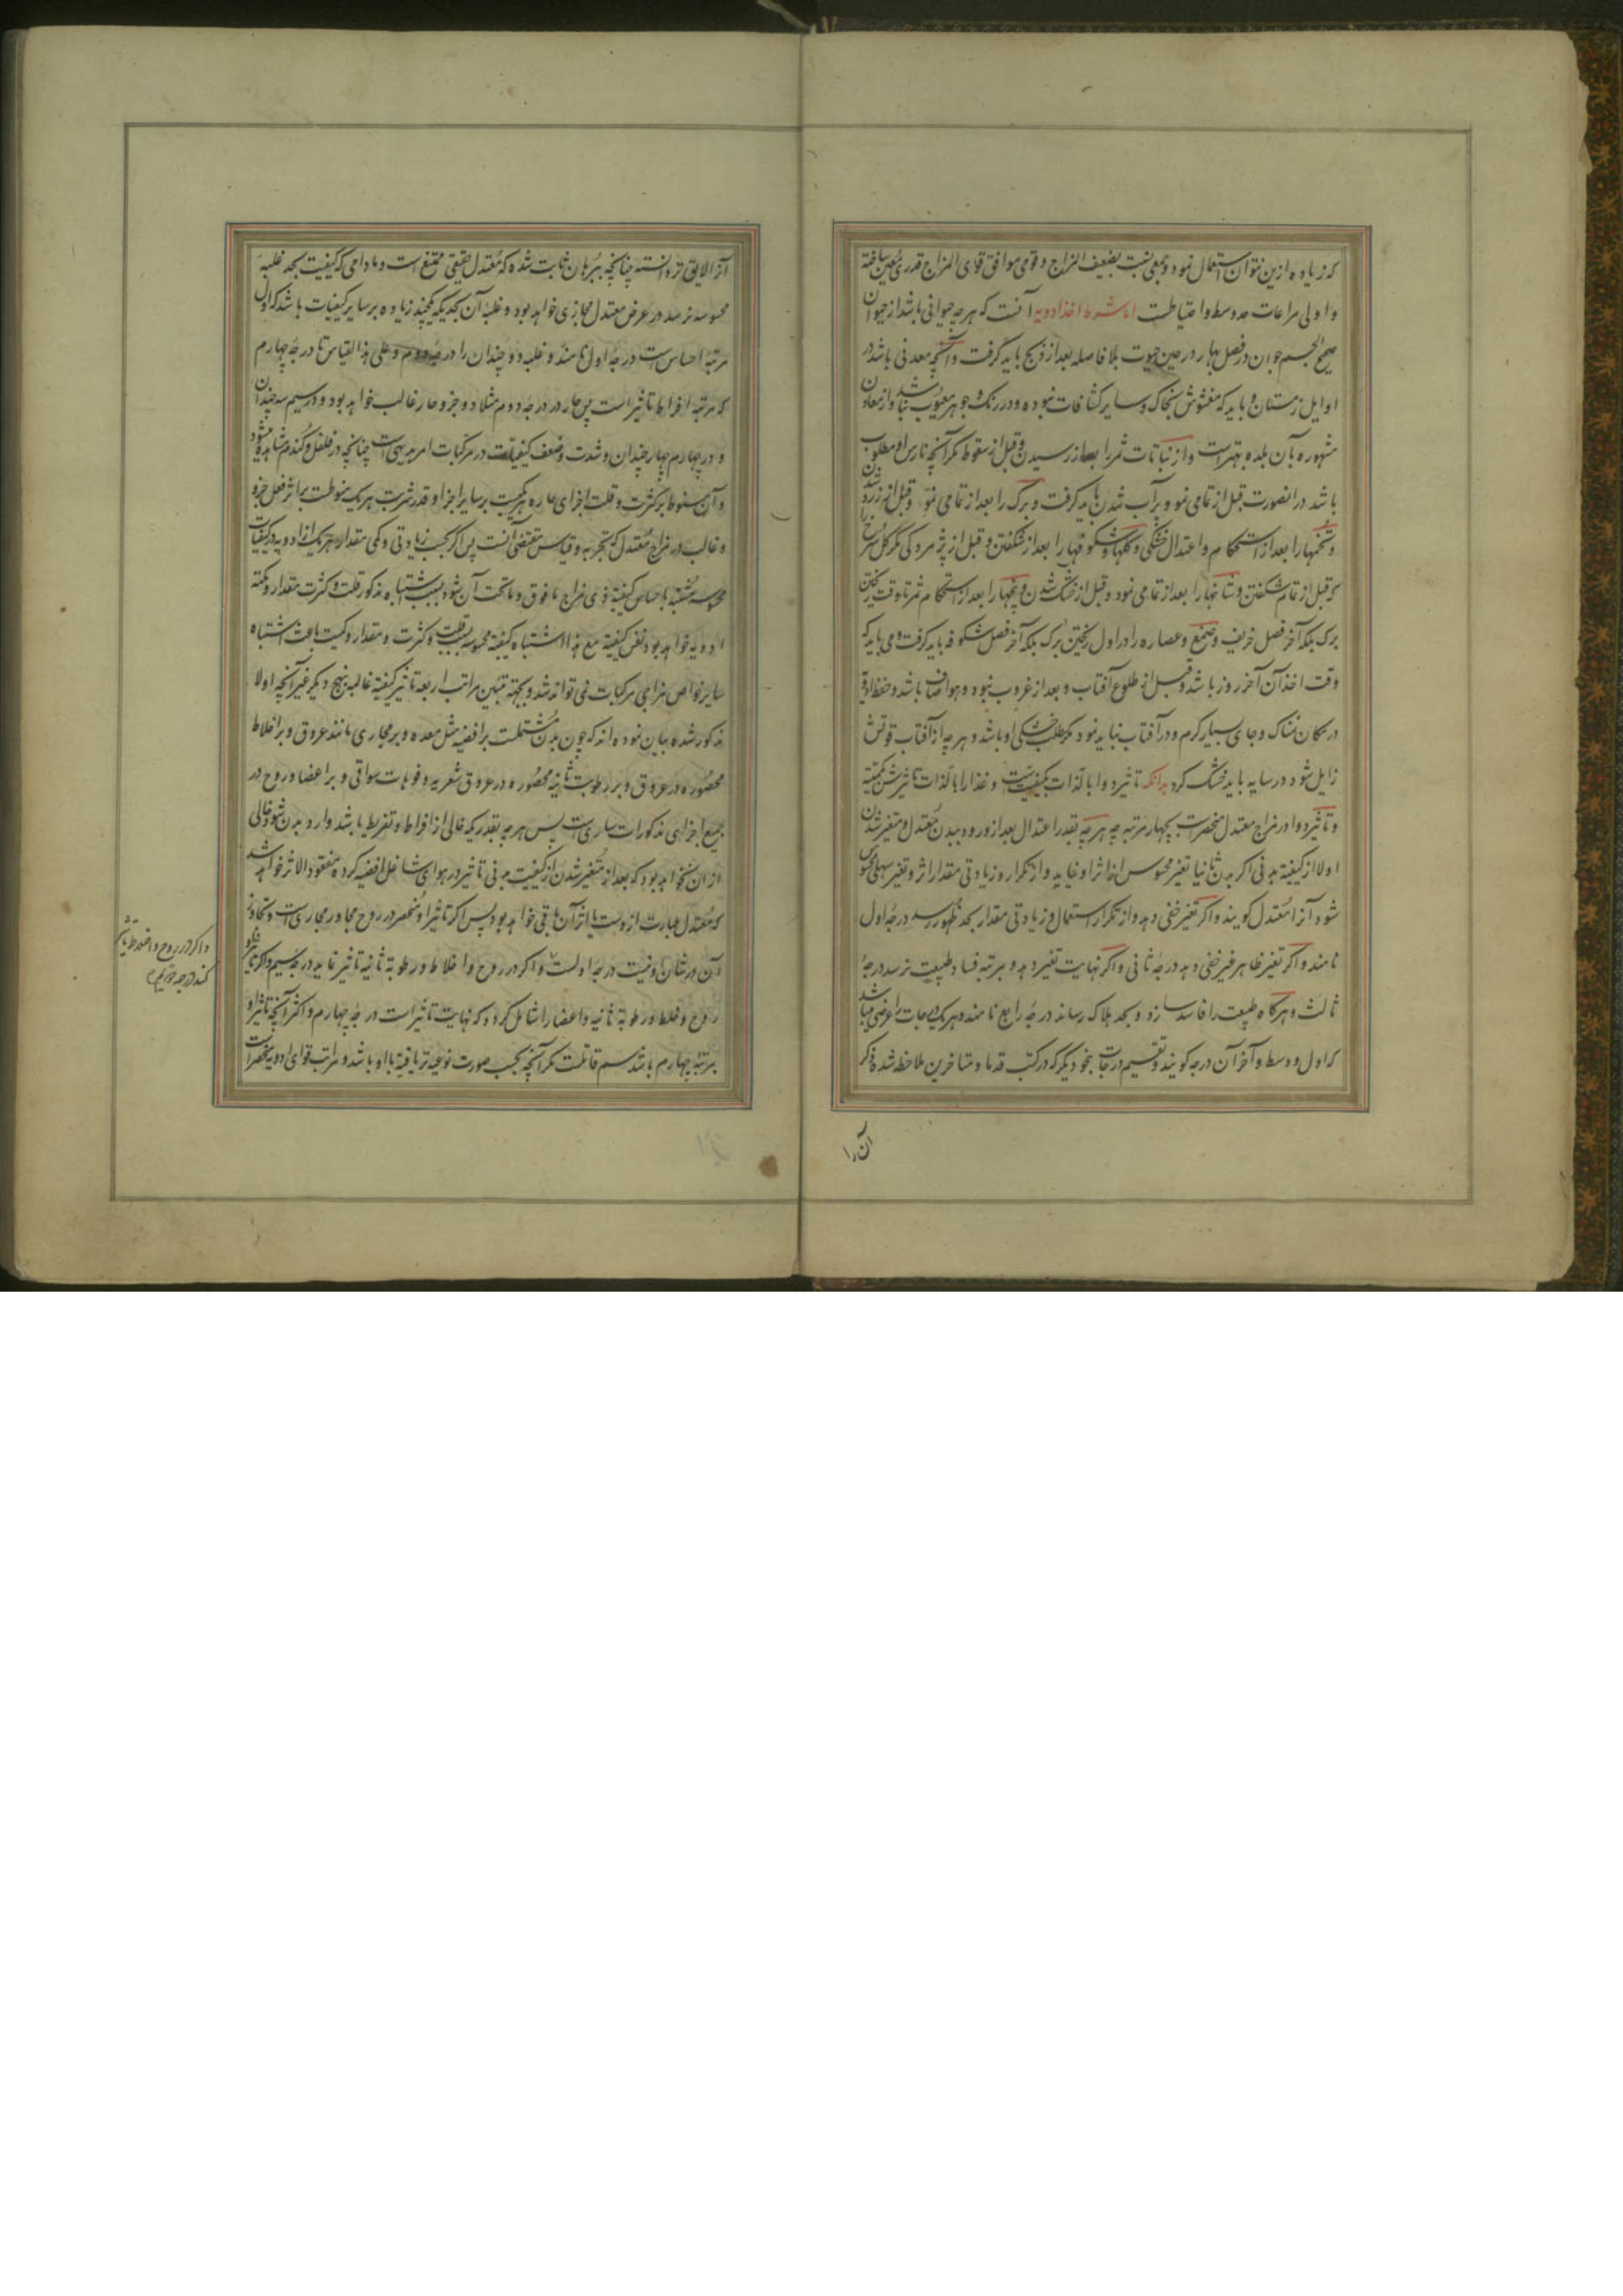 که زیاده ازین نتوان استعمال نمود و جمعی نسبت بضعیف المزاج و قومی موافق قوی المزاج قدری معین ساخته
و اولی مراعات حد وسط و احتیاطست اما شرط اخذ ادویه آنست که هر چه حیوانی باشد از حیوان
صحیح الجسم جوان در فصل بهار در حین حیوت بلا فاصله بعد از ذبح باید گرفت و آنچه معدنی باشد در
اوایل زمستان و باید که مغشوش بخاک و سایر کثافات نبوده و در رنگ و جوهر معیوب نباشد و از معادن
مشهوره بآن بلده بهتر است و از نباتات ثمر را بعد از رسیدن و قبل از سقوط مگر آنچه نارس او مطلوب
باشد در انصورت قبل از تمامی نمو و پرآب شدن باید گرفت و برگ را بعد از تمامی نمو و قبل از زرد شدن
و تخمها را بعد از استحکام و اعتدال خشکی و گلها و شکوفها را بعد از شکفتن و قبل از پژمردگی مگر گل سرخ را
که قبل از تمام شکفتن و شاخها را بعد از تمامی نمو و قبل از خشک شدن و بیخها را بعد از استحکام ثمر تا وقت ریختن
برگ بلکه آخر فصل خریف و صمغ و عصاره را در اول ریختن برگ بلکه آخر فصل شکوفه باید گرفت و می باید که
وقت اخذ آن آخر روز باشد و قبل از طلوع آفتاب و بعد از غروب نبوده و هوا صاف باشد و حفظ ادویه
در مکان نمناک و جای بسیار گرم و در آفتاب نباید نمود مگر مطلب خشکی او باشد و هر چه از آفتاب قوتش
زایل شود در سایه باید خشک کرد بدانکه تاثیر دوا بالذات بکیفیتست و غذا را بالذات تاثیرش بکمیته
و تاثیر دوا در مزاج معتدل منحصر است بچهار مرتبه چه هر چه بقدر اعتدال بعد از ورود ببدن معتدل و متغیر شدن
اولا از کیفیته بدنی اگر بدن ثانیا تغیر محسوس از اثر او نیابد و از تکرار و زیادتی مقدار اثر و تغیر سهلی محسوس
شود آنرا معتدل گویند و اگر تغیر خفی دهد و از تکرار استعمال و زیادتی مقدار بحد ظهور رسد درجهٔ اول
نامند و اگر تغیر ظاهر غیر خفی دهد درجهٔ ثانی و اگر نهایت تغیر دهد و بمرتبه فساد طبیعت نرسد درجهٔ
ثالث و هرگاه طبیعت را فاسد سازد و بحد هلاک رساند درجهٔ رابع نامند و هر یک درجات را عرضی میباشد
که اول و وسط و آخر آن درجه گویند و تقسیم درجات بنحو دیگر که در کتب قدما و متاخرین ملاحظه شد ذکر
آن را
آنرا لایق تر دانسته چنانچه ببرهان ثابت شده که معتدل حقیقی ممتنع است و مادامی که کیفیت بحد غلبهٔ
محسوسه نرسد در عرض معتدل مجازی خواهد بود و غلبهٔ آن بحدیکه یکچند زیاده بر سایر کیفیات باشد که اول
مرتبهٔ احساس است درجهٔ اول نامند و غلبه دو چندان را درجهٔ دوم و علی هذا القیاس تا درجهٔ چهارم
که مرتبه افراط تاثیر است پس حار در درجهٔ دوم مثلا دو جزو حار غالب خواهد بود و در سیم سه چندان
و در چهارم چهار چندان و شدت و ضعف کیفیات در مرکبات امر بدیهی است چنانچه در فلفل و گندم مشاهده میشود
و آن منوط بر کثرت و قلت اجزای حاره هر یکست بر سایر اجزا و قدر شربت هر یک منوطست بر اثر فعل جزو
و غالب در مزاج معتدل که تجربه و قیاس مقتضی آنست پس اگر بحسب زیادتی و کمی مقدار هر یک از ادویه در کیفیات
محسوسه مشتبه باحساس کیفیة ذی مزاج مافوق و ماتحت آن شود بسبب اشتباه مذکور قلت و کثرت مقدار و کمیته
ادویه خواهد بود نه نفس کیفیة مع هذا اشتباه کیفیته محسوسه بسبب قلت و کثرت و مقدار و کمیت باعث اشتباه
سایر خواص مزاجی مرکبات نمی تواند شد و بجهته تبیین مراتب اربعه تاثیر کیفیته غالبه بنهج دیگر غیر آنچه اولا
مذکور شده بیان نموده اند که چون بدن مشتملست بر افضیه مثل معده و بر مجاری مانند عروق و بر اخلاط
محصوره در عروق و بر رطوبت ثانیه محصوره در عروق شعریه و فوهات سواقی و بر اعضا و روح در
جمیع اجزای مذکورات ساری است پس هر چه بقدریکه خالی از افراط و تفریط باشد وارد بدن شود خالی
از ان نخواهد بود که بعد از متغیر شدن از کیفیت بدنی تاثیر در هوای شاغل افضیه کرده مفقود الاثر خواهد شد
که معتدل عبارت ازوست یا اثر آن باقی خواهد بود پس اگر تاثیر او منحصر در روح مجاور مجاری است و تجاوز
آن در شان او نیست درجهٔ اولست و اگر در روح و اخلاط و رطوبة ثانیه تاثیر نماید درجهٔ سیم و اگر تاثیر او
روح و خلط و رطوبة ثانیه و اعضا را شامل گردد که نهایت تاثیر است درجهٔ چهارم و اکثر آنچه تاثیر او
بمرتبهٔ چهارم باشد سم قاتلست مگر آنچه بحسب صورت نوعیه تریاقیة با او باشد و مراتب قوای ادویه منحصر است
و اگر در روح و اخلاط تاثیر
کند درجه دویم